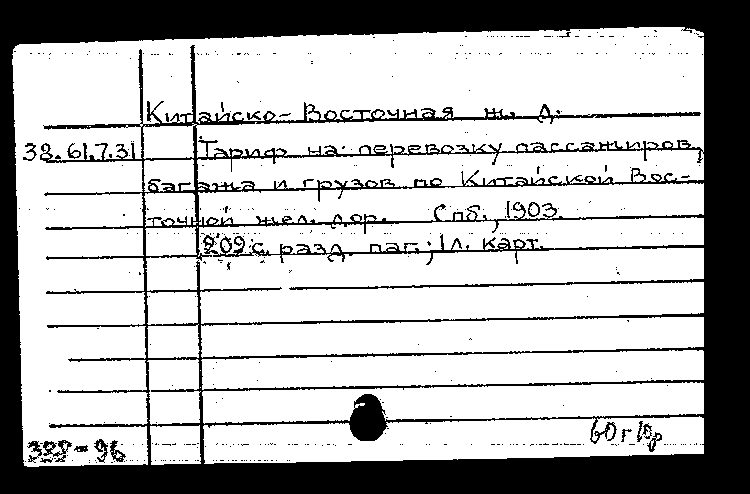 Китайско-Восточная ж. д.
38.61.7.31 Тариф на перевозку пассажиров,
багажа и грузов по Китайской Вос-
точной жел. дор. Спб., 1903.
209 с. разд. паг.; 1 л. карт.
328-96